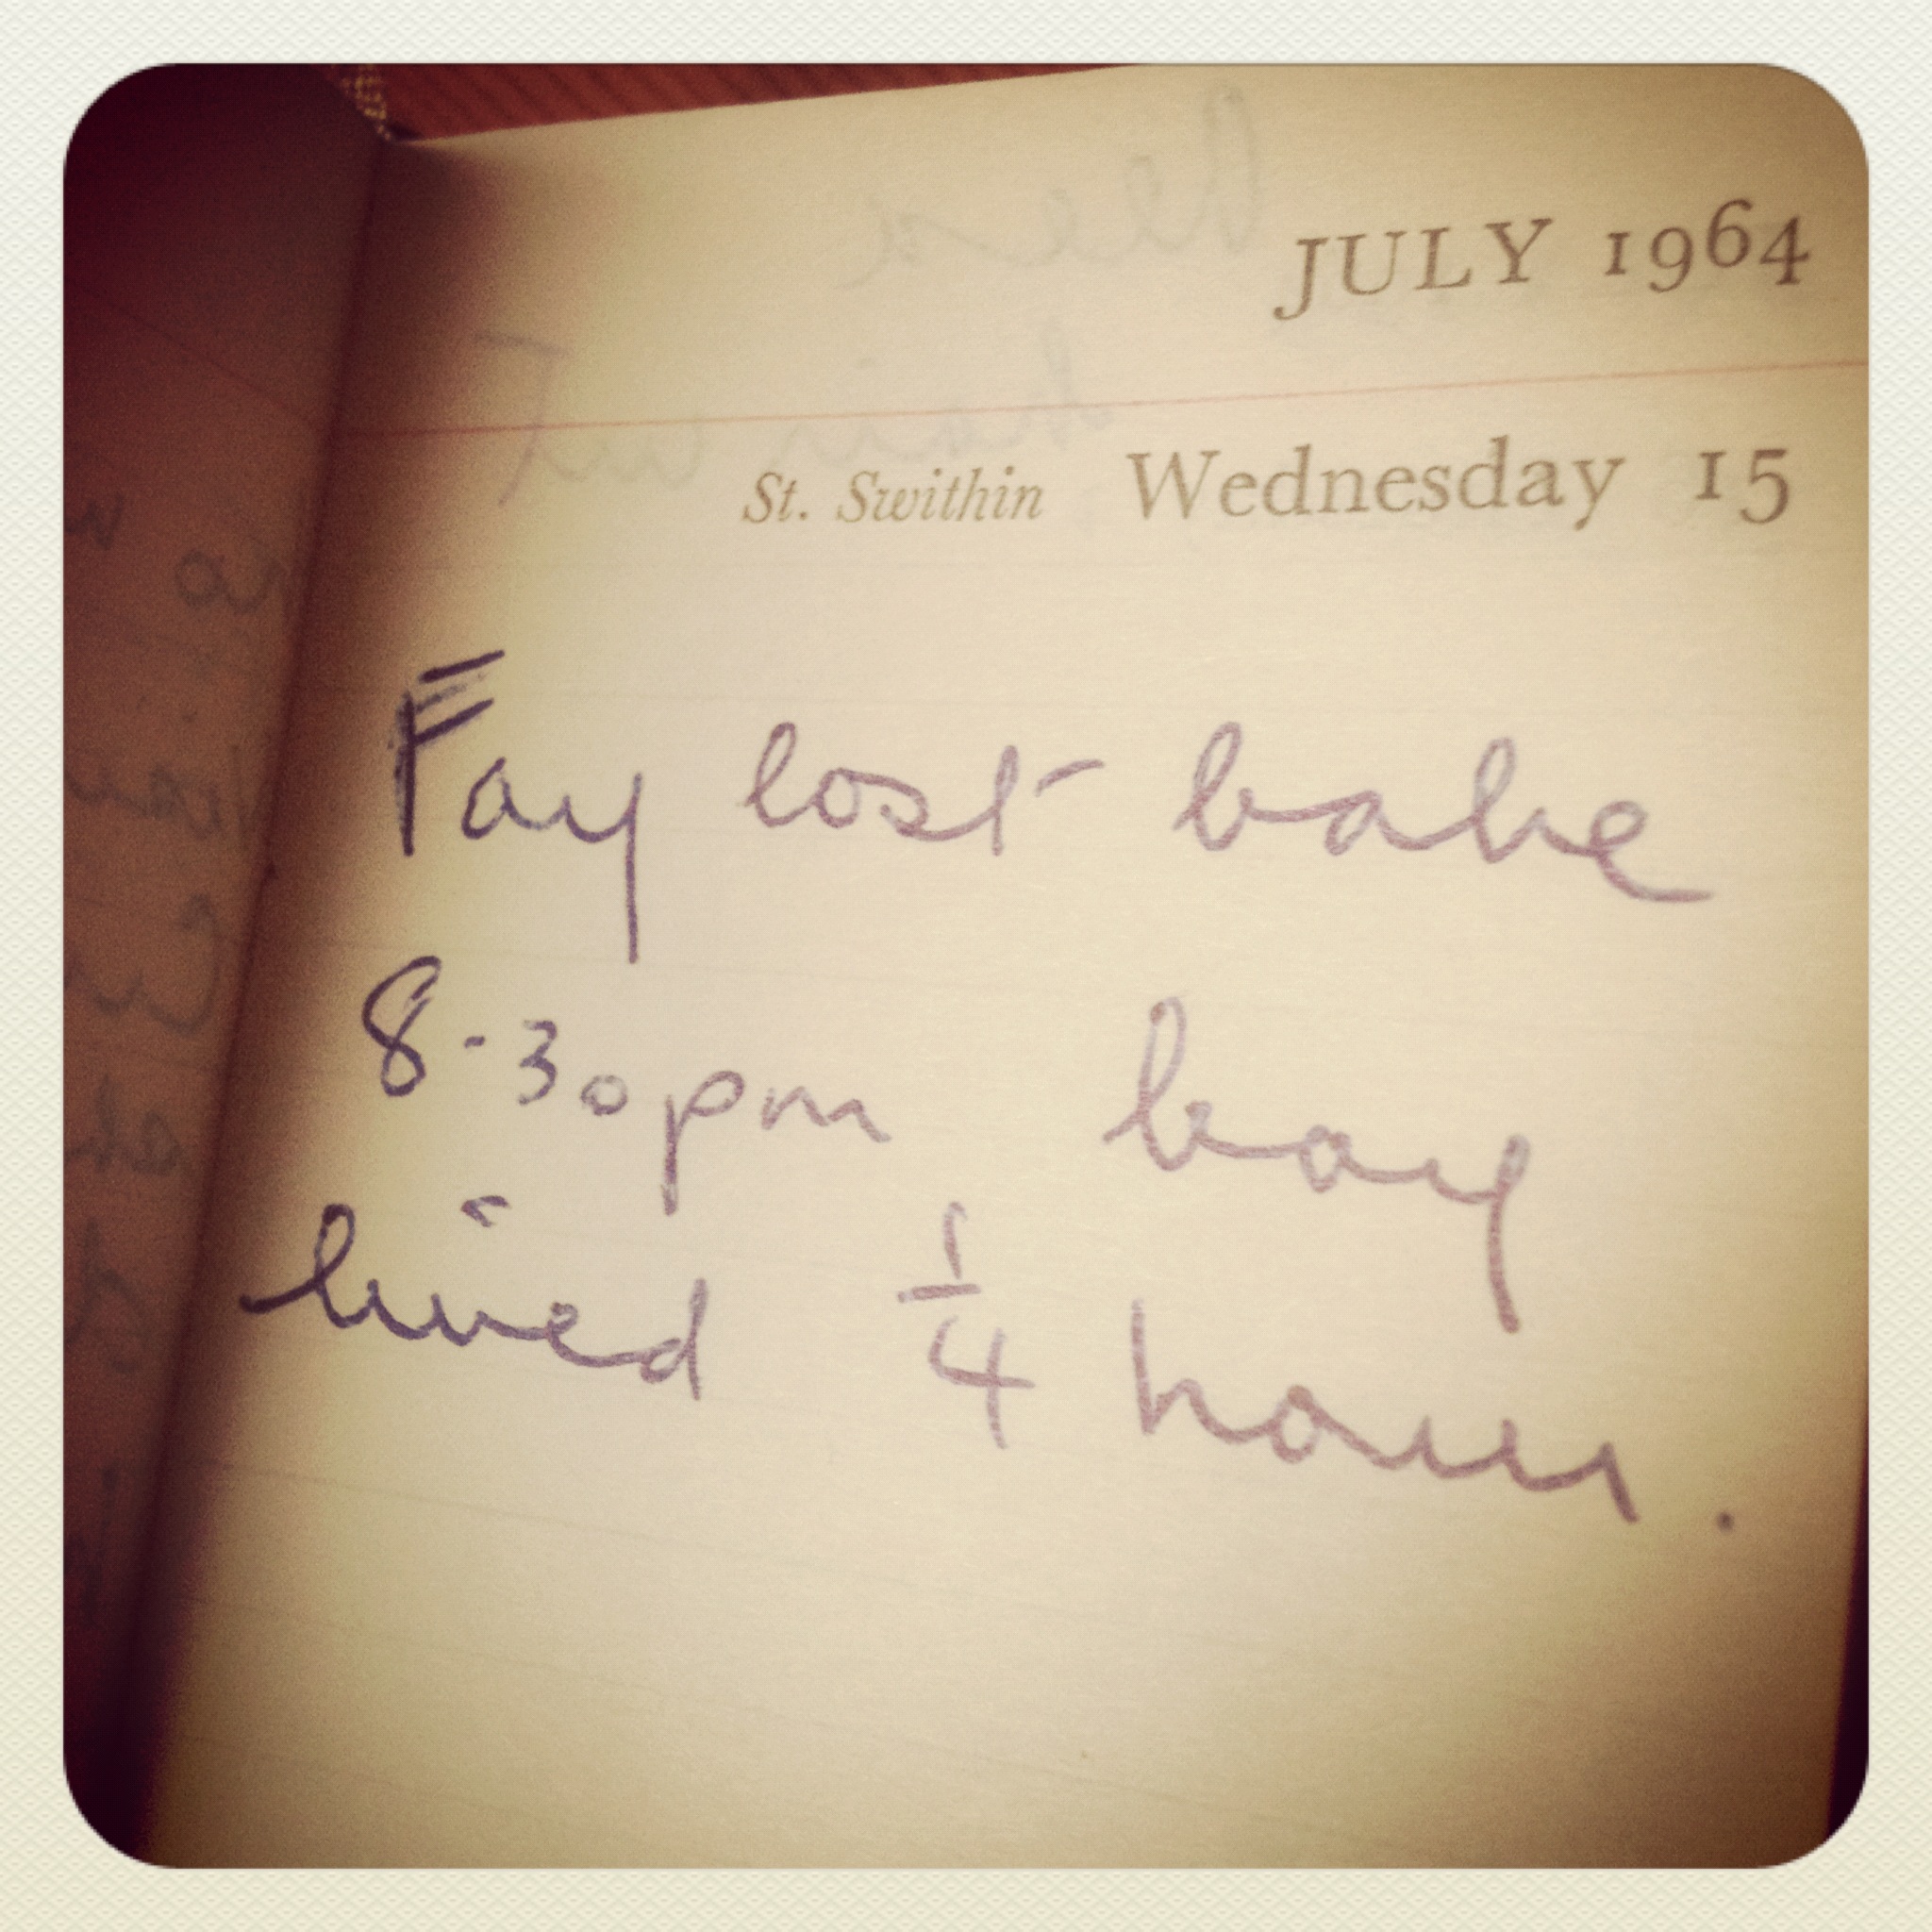 JULY 1964
St. Swithin Wednesday 15
Fay lost babe
8-30pm boy
lived 1/4 hour.